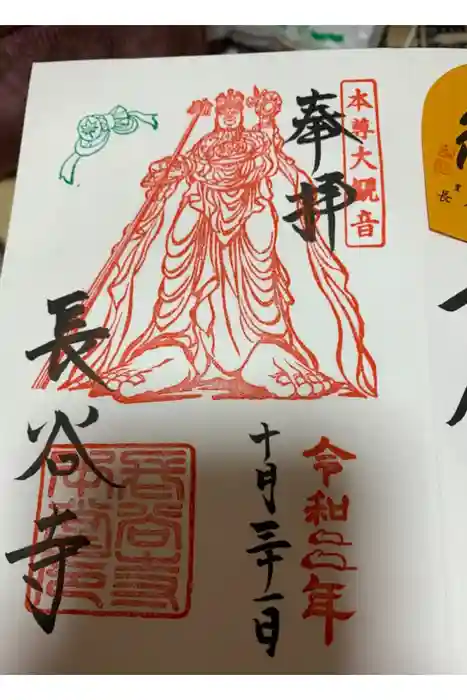 本尊大観音
奉拝
令和二年
十月三十一日
長谷寺